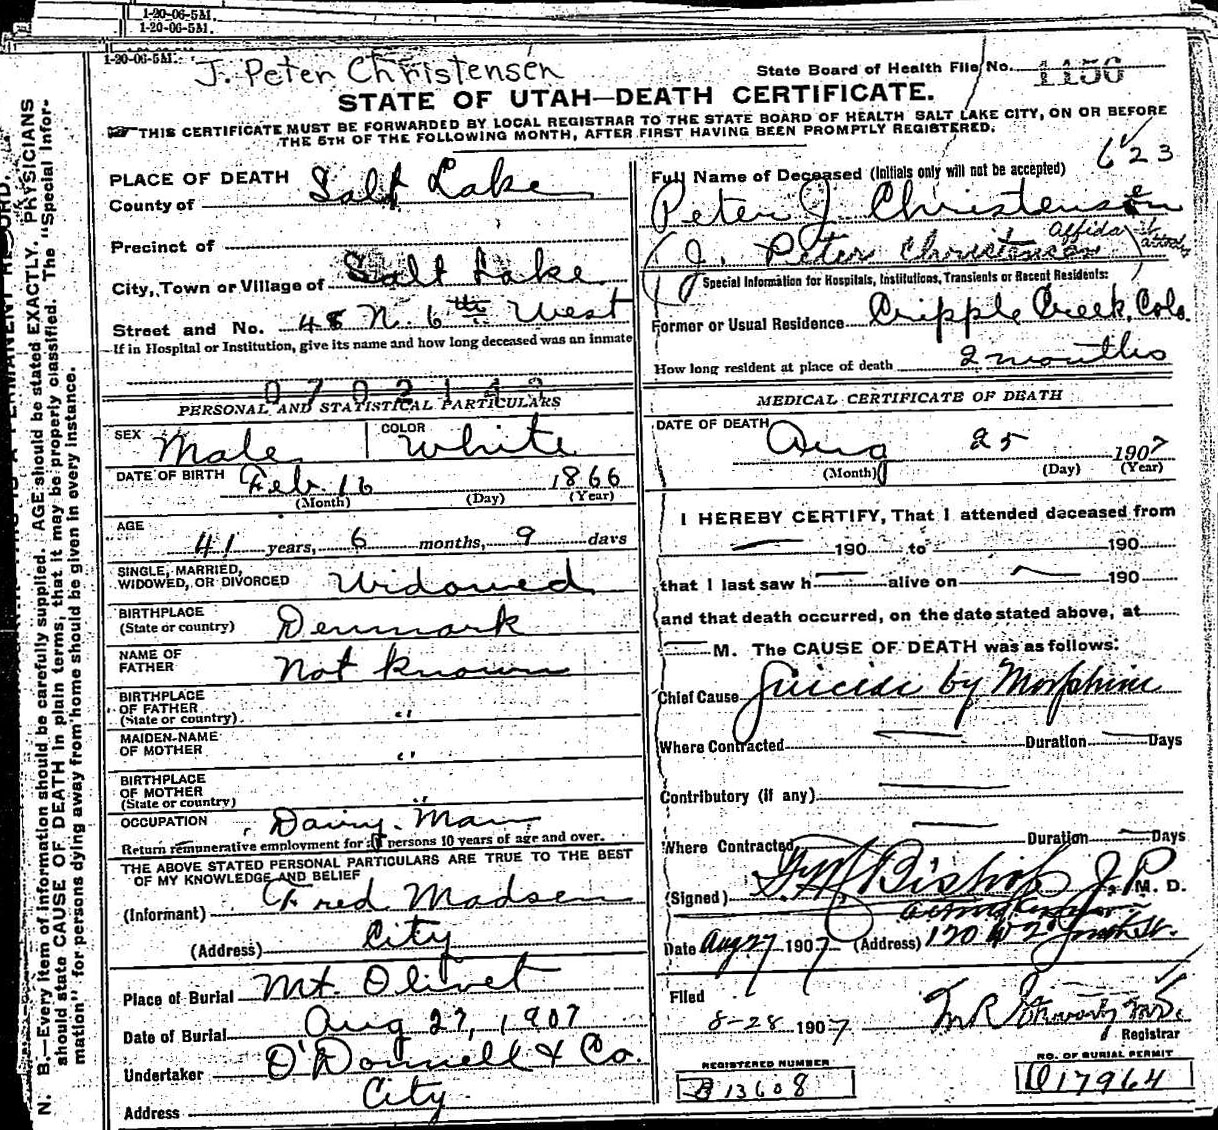 1-20-06-5M.
1-20-06-5M.
1-20-06-5M.
J. Peter Christensen
State Board of Health File No. 1156
STATE OF UTAH—DEATH CERTIFICATE.
THIS CERTIFICATE MUST BE FORWARDED BY LOCAL REGISTRAR TO THE STATE BOARD OF HEALTH SALT LAKE CITY, ON OR BEFORE
THE 5TH OF THE FOLLOWING MONTH, AFTER FIRST HAVING BEEN PROMPTLY REGISTERED.
PLACE OF DEATH
County of Salt Lake
Precinct of
City, Town or Village of Salt Lake
Street and No. 48 N. 6th West
If in Hospital or Institution, give its name and how long deceased was an inmate
PERSONAL AND STATISTICAL PARTICULARS
SEX Male COLOR White
DATE OF BIRTH Feb. 16 1866
(Month) (Day) (Year)
AGE 41 years, 6 months, 9 days
SINGLE, MARRIED,
WIDOWED, OR DIVORCED Widowed
BIRTHPLACE
(State or country) Denmark
NAME OF
FATHER Not known
BIRTHPLACE
OF FATHER
(State or country) "
MAIDEN-NAME
OF MOTHER "
BIRTHPLACE
OF MOTHER
(State or country) "
OCCUPATION Dairy-Man
Return remunerative employment for all persons 10 years of age and over.
THE ABOVE STATED PERSONAL PARTICULARS ARE TRUE TO THE BEST
OF MY KNOWLEDGE AND BELIEF
(Informant) Fred Madsen
(Address) City
Place of Burial Mt. Olivet
Date of Burial Aug 27, 1907
Undertaker O'Donnell & Co.
Address City
623
Full Name of Deceased (Initials only will not be accepted)
Peter J. Christensen
(J. Peter Christensen)
Special Information for Hospitals, Institutions, Transients or Recent Residents:
Former or Usual Residence Cripple Creek, Colo.
How long resident at place of death 2 months
MEDICAL CERTIFICATE OF DEATH
DATE OF DEATH Aug 25 1907
(Month) (Day) (Year)
I HEREBY CERTIFY, That I attended deceased from
190 to 190
that I last saw h alive on 190
and that death occurred, on the date stated above, at
M. The CAUSE OF DEATH was as follows:
Chief Cause Suicide by Morphine
Where Contracted Duration Days
Contributory (if any)
Where Contracted Duration Days
(Signed) Bishop J.P. M. D.
Date Aug 27 1907 (Address)
Filed
8-28 1907
Registrar
REGISTERED NUMBER
B 13608
NO. OF BURIAL PERMIT
17964
N. B.—Every item of information should be carefully supplied. AGE should be stated EXACTLY. PHYSICIANS
should state CAUSE OF DEATH in plain terms, that it may be properly classified. The "Special Infor-
mation" for persons dying away from home should be given in every instance.